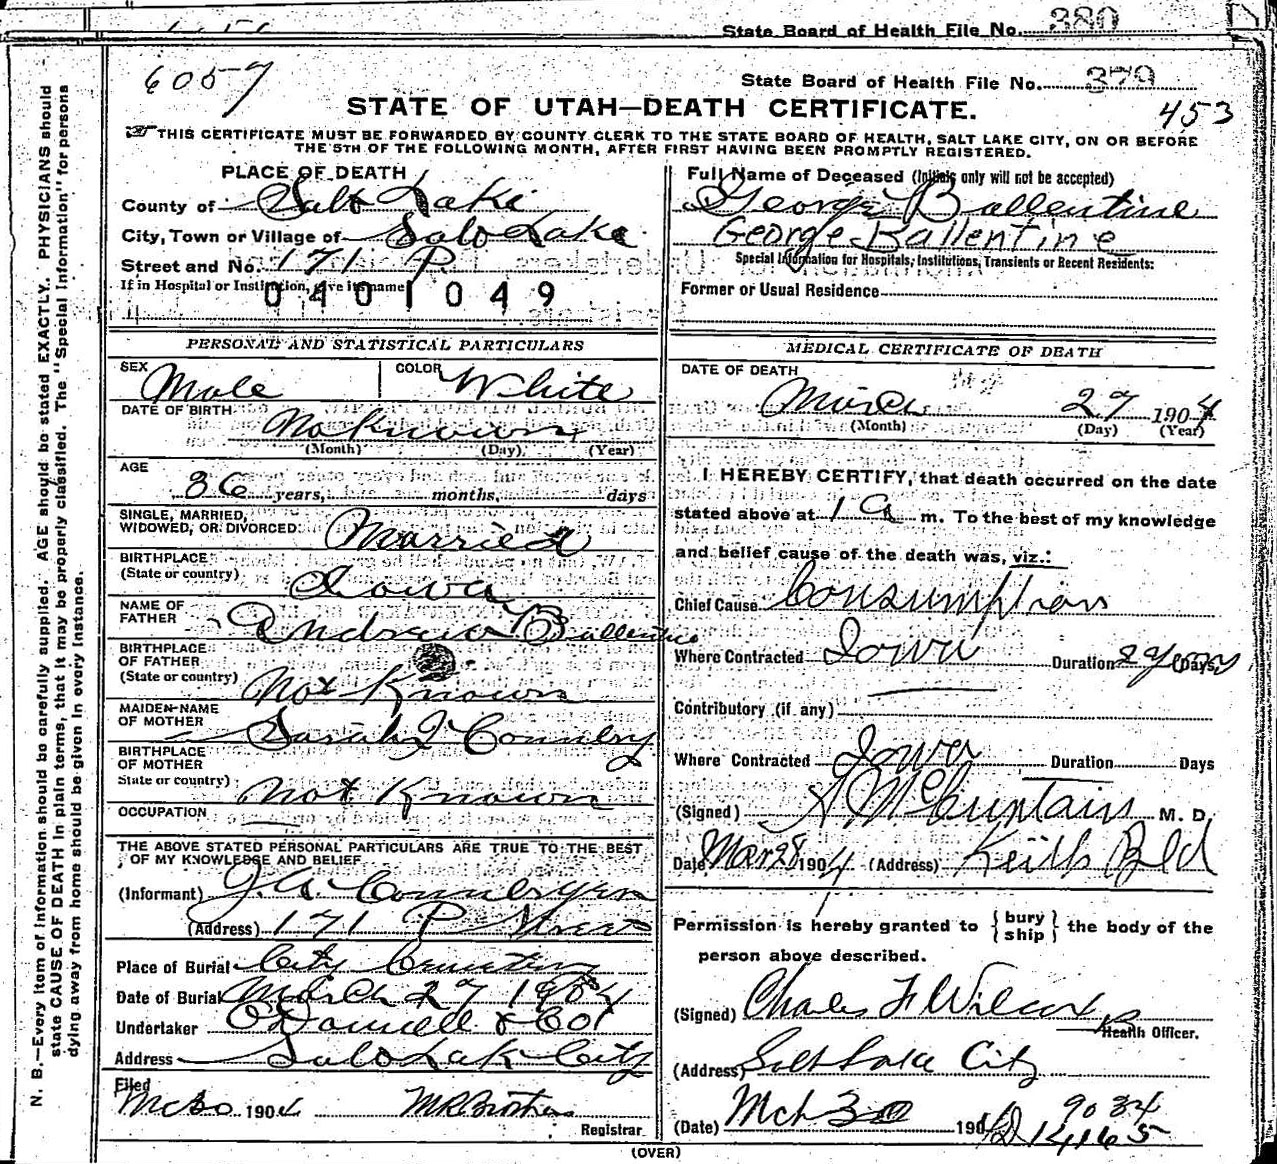 State Board of Health File No. 380
6057
State Board of Health File No. 379
STATE OF UTAH—DEATH CERTIFICATE.
453
THIS CERTIFICATE MUST BE FORWARDED BY COUNTY CLERK TO THE STATE BOARD OF HEALTH, SALT LAKE CITY, ON OR BEFORE
THE 5TH OF THE FOLLOWING MONTH, AFTER FIRST HAVING BEEN PROMPTLY REGISTERED.
N. B.—Every item of information should be carefully supplied. AGE should be stated EXACTLY. PHYSICIANS should
state CAUSE OF DEATH in plain terms, that it may be properly classified. The "Special Information" for persons
dying away from home should be given in every instance.
PLACE OF DEATH
County of Salt Lake
City, Town or Village of Salt Lake
Street and No. 171 P.
If in Hospital or Institution, give its name
0401049
PERSONAL AND STATISTICAL PARTICULARS
SEX Male COLOR White
DATE OF BIRTH No Known
(Month) (Day) (Year)
AGE
36 years, months, days
SINGLE, MARRIED,
WIDOWED, OR DIVORCED Married
BIRTHPLACE
(State or country) Iowa
NAME OF
FATHER Andrew Ballentine
BIRTHPLACE
OF FATHER
(State or country) Not Known
MAIDEN-NAME
OF MOTHER Sarah J
BIRTHPLACE
OF MOTHER
State or country) Not Known
OCCUPATION
THE ABOVE STATED PERSONAL PARTICULARS ARE TRUE TO THE BEST
OF MY KNOWLEDGE AND BELIEF
(Informant) J. A.
(Address) 171 P Street
Place of Burial City Cemetery
Date of Burial March 27 1904
Undertaker O'Donnell & Co
Address Salt Lake City
Filed
1904
Registrar
Full Name of Deceased (Initials only will not be accepted)
George Ballentine
George Ballentine
Special Information for Hospitals, Institutions, Transients or Recent Residents:
Former or Usual Residence
MEDICAL CERTIFICATE OF DEATH
DATE OF DEATH
March 27 1904
(Month) (Day) (Year)
I HEREBY CERTIFY, that death occurred on the date
stated above at 1 a m. To the best of my knowledge
and belief cause of the death was, viz.:
Chief Cause Consumption
Where Contracted Iowa Duration 2 years Days
Contributory (if any)
Where Contracted Iowa Duration Days
(Signed) M. D.
Date Mar 28 1904 (Address) Keith Bld
Permission is hereby granted to { bury ship } the body of the
person above described.
(Signed) Charles F Wilcox
Health Officer.
(Address) Salt Lake City
(Date) Mch 30 190
9034
(OVER)